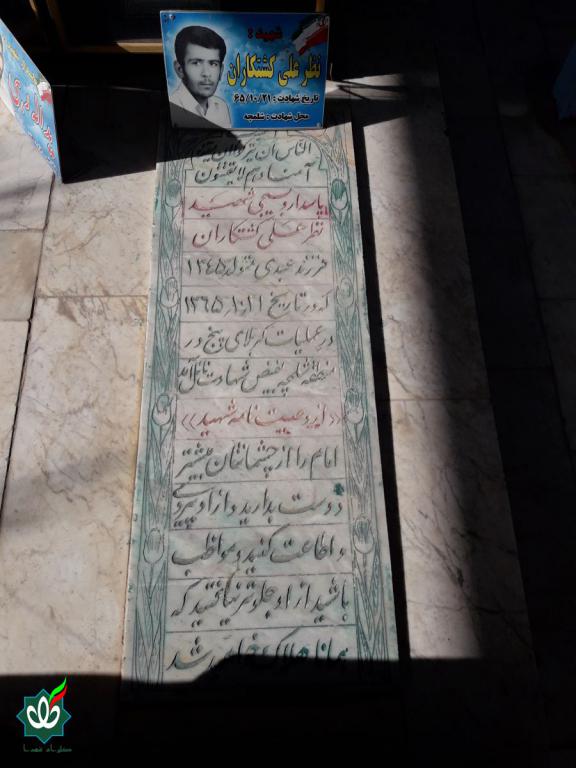 شهید :
نظر علی کشتکاران
تاریخ شهادت : ۶۵/۱۰/۲۱
محل شهادت : شلمچه
الناس ان یترکوا ان یقولوا
آمنا و هم لا یفتنون
پاسدار بسیجی شهید
نظر علی کشتکاران
فرزند عبدی متولد ۱۳۴۵
که در تاریخ ۲۱ر۱۰ر۱۳۶۵
در عملیات کربلای پنج در
منطقه شلمچه بفیض شهادت نائل آمد
«از وصیت نامه شهید»
امام را از چشمانتان بیشتر
دوست بدارید و از او پیروی
و اطاعت کنید و مواظب
باشید از او جلوتر نیفتید که
همانا هلاک خواهید شد